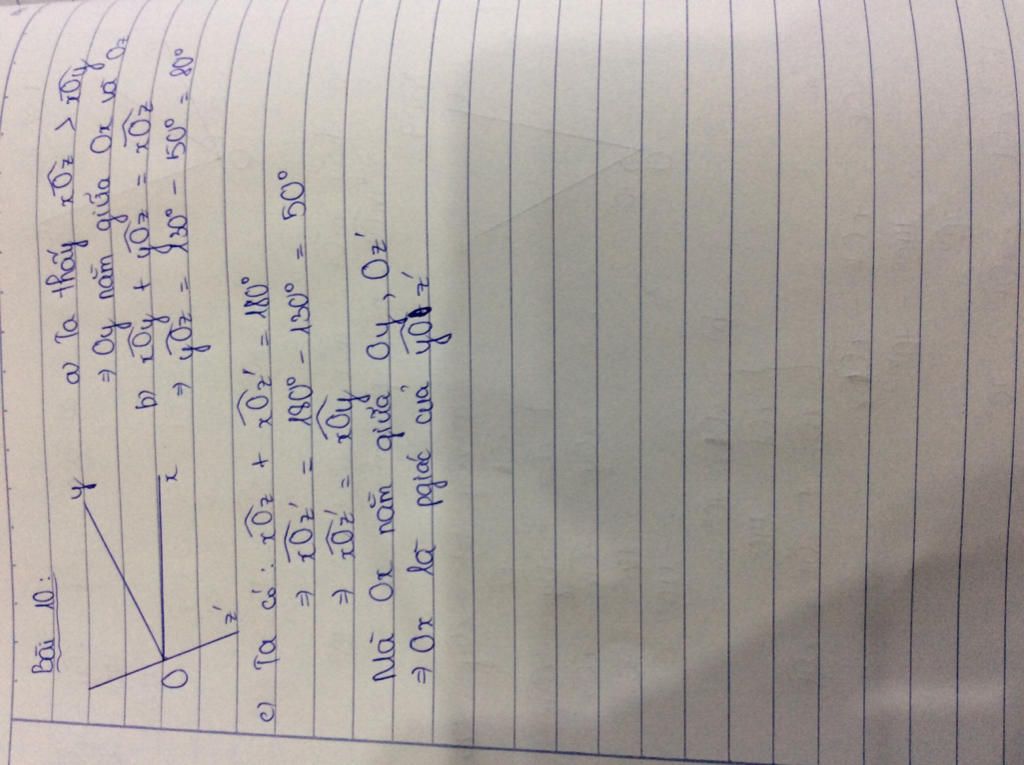 Bài 10:
y
x
O
z'
a) Ta thấy xOz > xOy
⇒ Oy nằm giữa Ox và Oz
b) xOy + yOz = xOz
⇒ yOz = 130° - 50° = 80°
c) Ta có: xOz + xOz' = 180°
⇒ xOz' = 180° - 130° = 50°
⇒ xOz' = xOy
Mà Ox nằm giữa Oy, Oz'
⇒ Ox là pgiác của yOz'